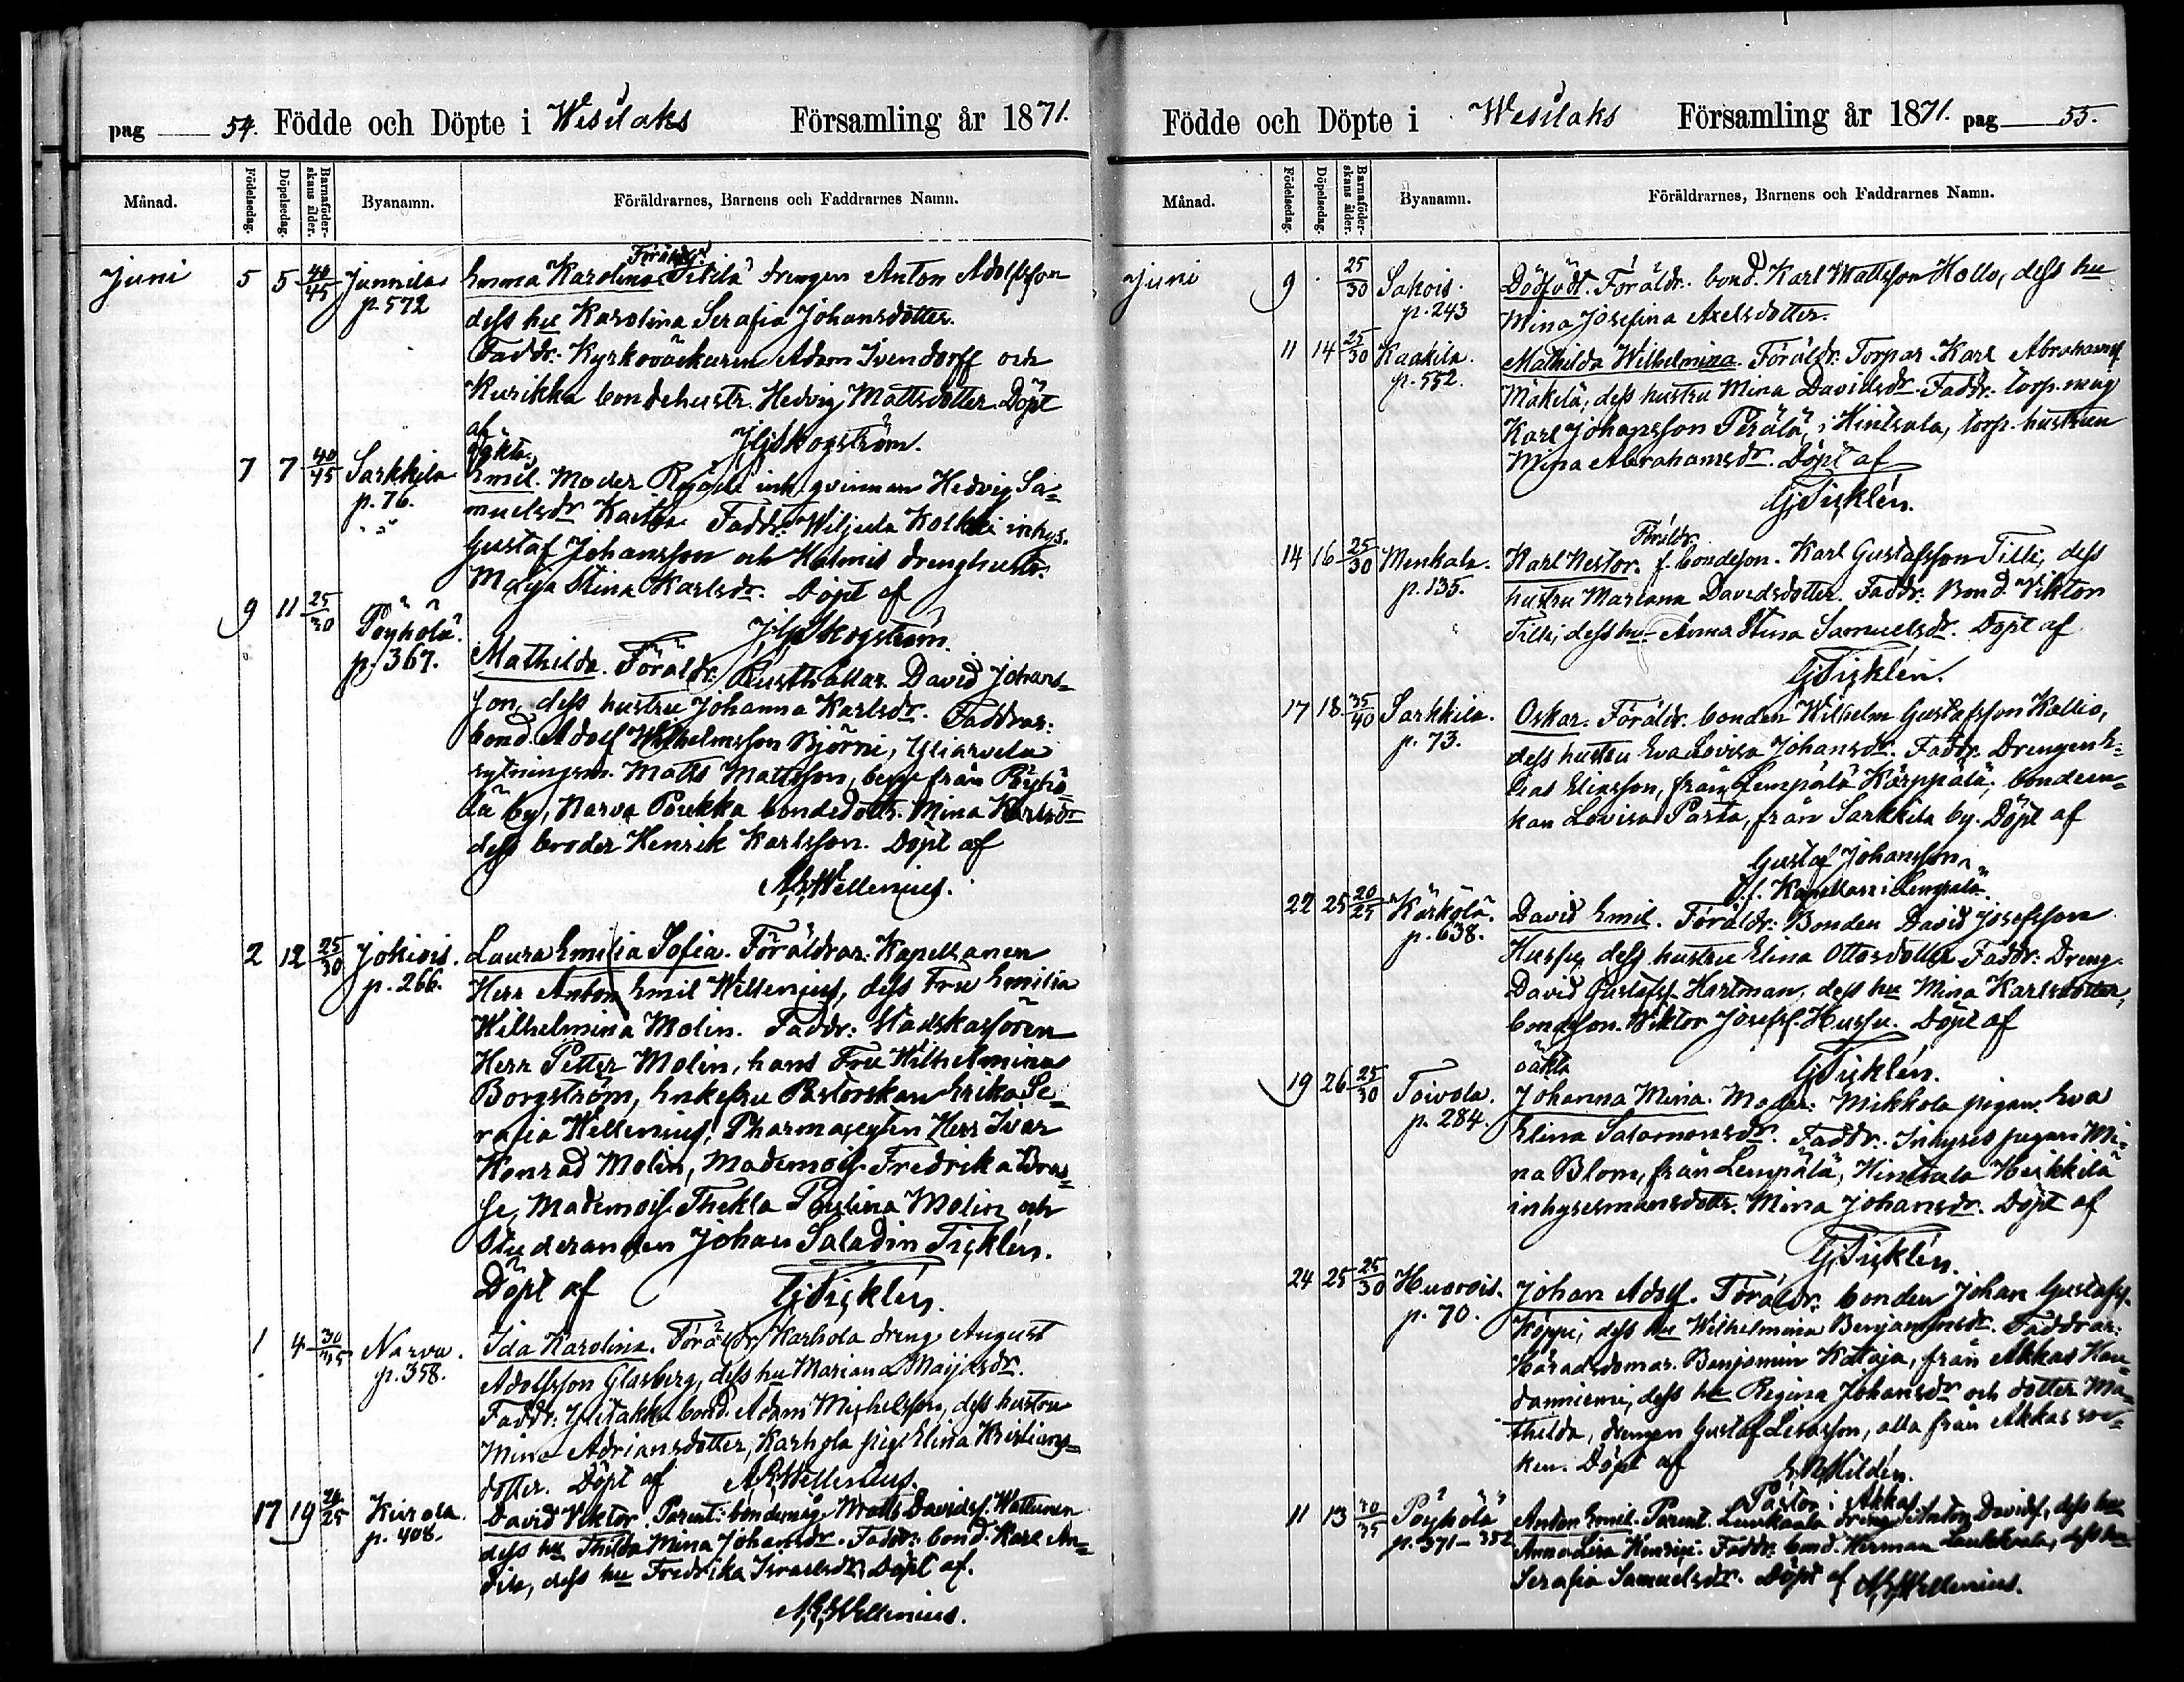 pag 54. Födde och Döpte i Wesilaks Församling år 1871.
Månad. Födelsedag. Döpelsedag. Barnaföderskans ålder. Byanamn. Föräldrarnes, Barnens och Faddrarnes Namn.
Föräldr:
Juni 5 5 40/45 Junnila Emma Karolina Sikilä drengen Anton Adolfsson
p. 572 dess hu Karolina Serafia Johansdotter.
Faddr: Kyrkoväcktaren Adam Ivendorff och
Kurikka bondehustr. Hedvig Mattsdotter. Döpt
af JHSkogström.
oäkta,
7 7 40/45 Sarkkila Emil. Moder inh. qvinnan Hedvig Sa=
p. 76. muelsdr Faddr: Wiljula Kolkki inhys.
Gustaf Johansson och Halmis drenghustr.
Maja Stina Karlsdr. Döpt af
JHSkogström.
9 11 25/30 Pöyhölä. Mathilda. Föräldr: Rusthållar. David Johans=
p. 367. son, dess hustru Johanna Karlsdr. Faddrar:
bond. Adolf Wilhelmsson Björni,
sytningsm. Matts Mattsson, begge från Pöyhö=
lä by, Narva Poukka bondedottr. Mina Karlsdr
dess broder Henrik Karlsson. Döpt af
A.E.Wellenius.
2 12 25/30 Jokiois. Laura Emilia Sofia. Föräldrar: Kapellanen
p. 266. Herr Anton Emil Wellenius, dess Fru Emilia
Wilhelmina Molin. Faddr: Stadskassören
Herr Petter Molin, hans Fru Wilhelmina
Borgström, Enkefru Pastorskan Erika Se=
rafia Wellenius, Pharmaceyten Herr Ivar
Konrad Molin, Mademois. Fredrika Bras=
se, Mademois. Thekla Paulina Molin och
Studeranden Johan Saladin Ticklén.
Döpt af GTicklén.
1 4 30/35 Narva. Ida Karolina. Föräldr Karhola dreng August
p. 358. Adolfsson Glasberg, dess hu Mariana Maijasdr.
Faddr: Ylistakku bond. Adam Michelsson, dess hustru
Mina Adriansdotter, Karhola pig. Elina Kristians=
dotter. Döpt af A.E.Wellenius.
17 19 20/25 Kurola. David Viktor Parent: bondemåg. Matts Davidss. Wattunen
p. 408. dess hu Thilda Mina Johansdr. Faddr: bond. Karl An=
tila, dess hu Fredrika Israelsdr. Döpt af.
A.E.Wellenius.
Födde och Döpte i Wesilaks Församling år 1871. pag 55.
Månad. Födelsedag. Döpelsedag. Barnaföderskans ålder. Byanamn. Föräldrarnes, Barnens och Faddrarnes Namn.
Juni 9 25/30 Sakois. Dödfödt. Föräldr. bond. Karl Mattsson Hollo, dess hu
p. 243 Mina Josefina Axelsdotter.
11 14 25/30 Kaakila. Mathilda Wilhelmina. Föräldr: Torpar. Karl Abrahamss.
p. 552. Mäkilä, dess hustru Mina Davidsdr. Faddr: torp. måg
Karl Johansson Perälä, i Hintsala, torp. hustrun
Mina Abrahamsdr. Döpt af
GTicklén.
Föräldr.
14 16 25/30 Menkala. Karl Nestor. f. bondeson. Karl Gustafsson Tilli, dess
p. 135. hustru Mariana Davidsdotter. Faddr: Bond. Viktor
Tilli, dess hu Anna Stina Samuelsdr. Döpt af
GTicklén.
17 18 35/40 Sarkkila. Oskar. Föräldr. bonden Wilhelm Gustafsson Kallio,
p. 73. dess hustru Eva Lovisa Johansdr. Faddr. Drengen E=
lias Eliasson, från Lempälä Kärppälä, bondeen=
kan Lovisa Pasta, från Sarkkila by. Döpt af
Gustaf Johansson
V.f. Kapellan i Lempälä.
22 25 20/25 Kärkölä. David Emil. Föräldr: Bonden David Josefsson
p. 638. Hussu, dess hustru Elina Ottosdotter Faddr: Dreng.
David Gustafss. Hartman, dess hu Mina Karlsdotter,
bondeson. Viktor Josefss. Hussu. Döpt af
oäkta GTicklén.
19 26 25/30 Toivola. Johanna Mina. Moder: Mikkola pigan. Eva
p. 284. Elina Salomonsdr. Faddr. Inhyses pigan Mi=
na Blom, från Lempälä, Hintsala Heikkilä
inhysesmansdottr. Mina Johansdr. Döpt af
GTicklén.
24 25 25/30 Huovois. Johan Adolf. Föräldr: bonden Johan Gustafss.
p. 70. Köppi, dess hu Wilhelmina Benjaminsdr. Faddrar:
Häradsdomar. Benjamin Kataja, från Akkas Kau=
danniemi, dess hu Regina Johansdr och dotter Ma=
thilda, drengen Gustaf Lisasson, alla från Akkas soc=
ken. Döpt af Hildén.
Pastor i Akkas.
11 13 30/35 Pöyhölä Anton Emil. Parent. Laukkaala dreng Anton Davidss, dess hu
p. 371–352 Anna Lisa Henriksd. Faddr: bond. Herman Laukkaala, dess hu
Serafia Samuelsdr. Döpt af A.E.Wellenius.